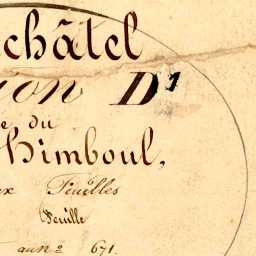 châtel
ion D¹
e du
himboul,
ux Feuilles
Feuille
aun² 671.